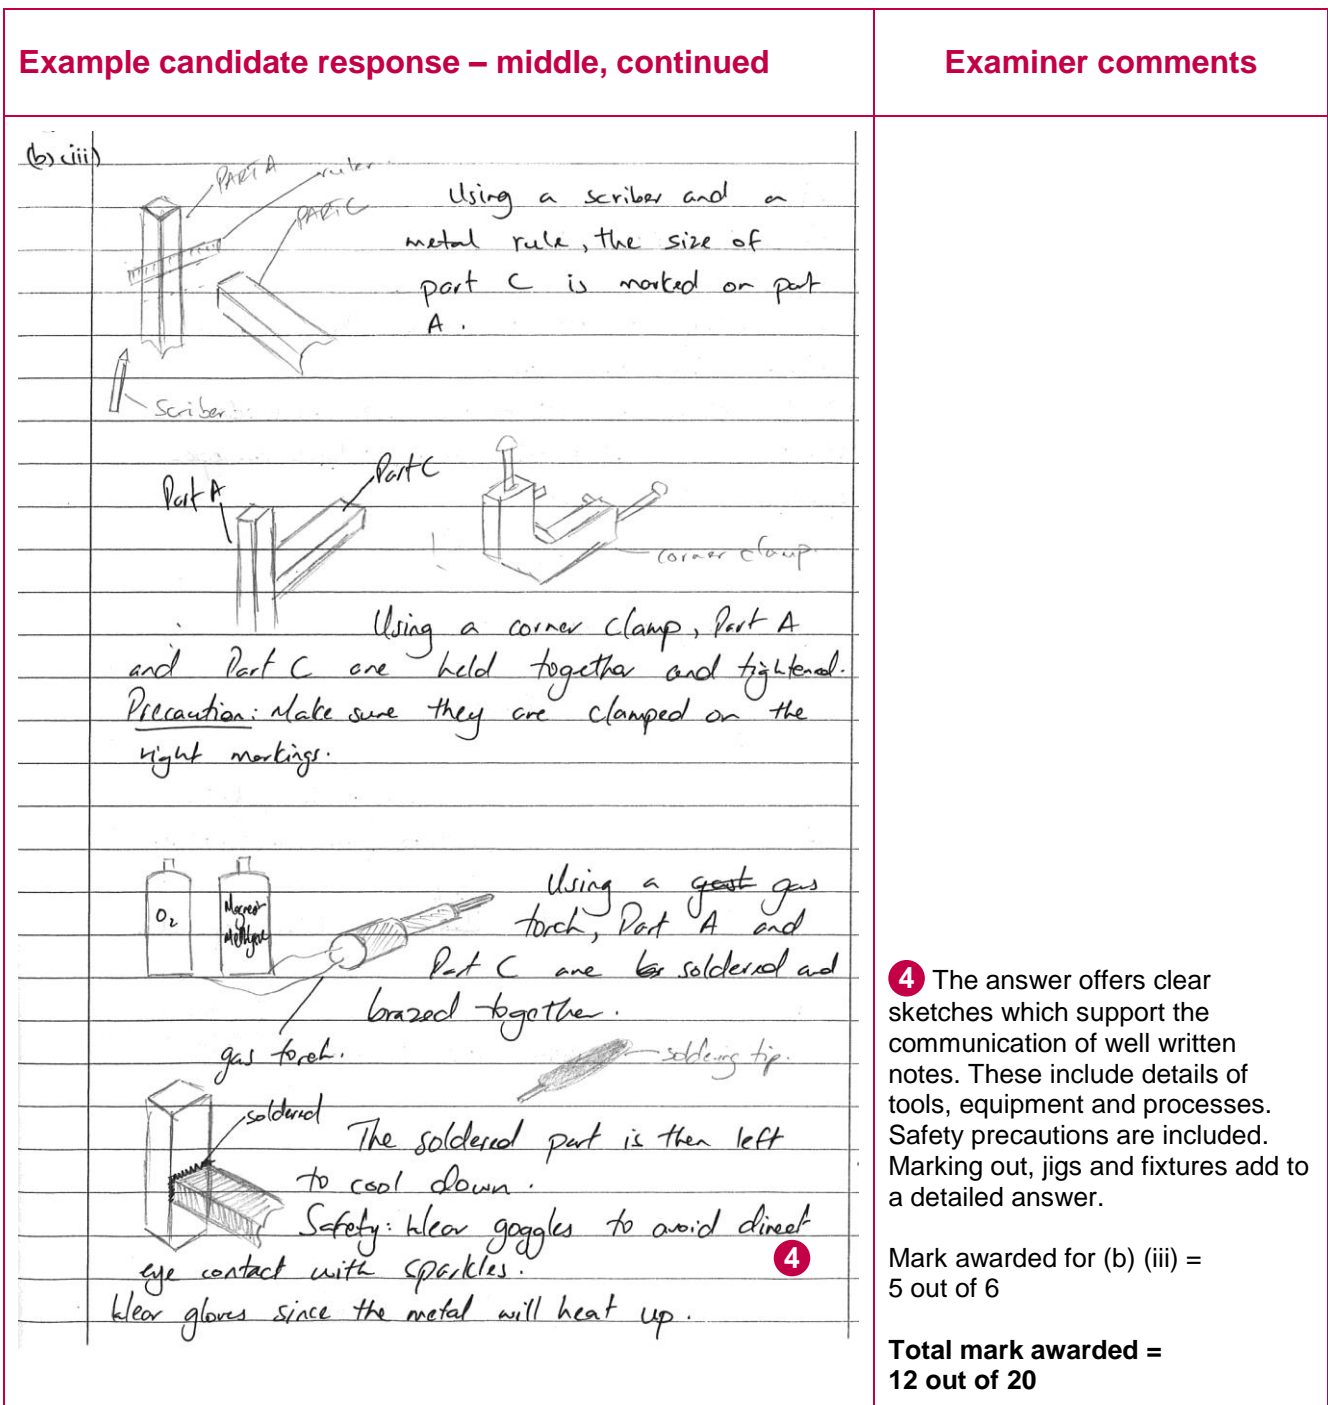 Example candidate response – middle, continued
Examiner comments
(b) (iii)
PART A
ruler
PART C
Using a scriber and a
metal rule, the size of
part C is marked on part
A.
Scriber
Part A
Part C
corner clamp.
Using a corner clamp, Part A
and Part C are held together and tightened.
Precaution: Make sure they are clamped on the
right markings.
O2
Using a gas
torch, Part A and
Part C are soldered and
brazed together.
gas torch.
soldering tip.
soldered
The soldered part is then left
to cool down.
Safety: Wear goggles to avoid direct
eye contact with sparkles.
4
Wear gloves since the metal will heat up.
4 The answer offers clear
sketches which support the
communication of well written
notes. These include details of
tools, equipment and processes.
Safety precautions are included.
Marking out, jigs and fixtures add to
a detailed answer.
Mark awarded for (b) (iii) =
5 out of 6
Total mark awarded =
12 out of 20